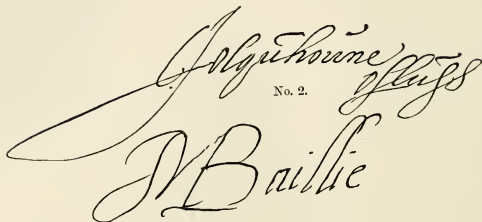 Colqūhoūne
oflūss
No. 2.
Baillie